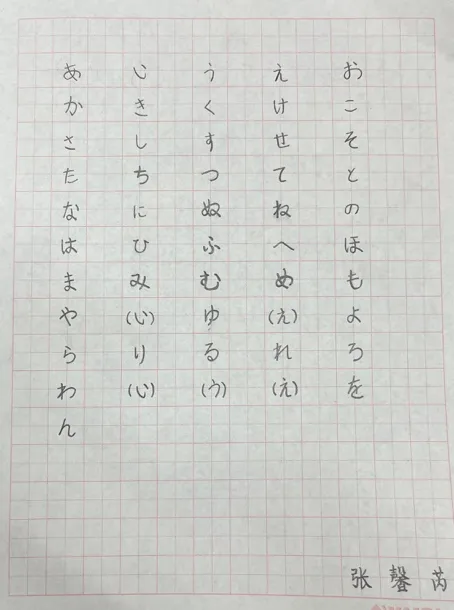 あ い う え お
か き く け こ
さ し す せ そ
た ち つ て と
な に ぬ ね の
は ひ ふ へ ほ
ま み む め も
や (い) ゆ (え) よ
ら り る れ ろ
わ (い) (う) (え) を
ん
张馨芮